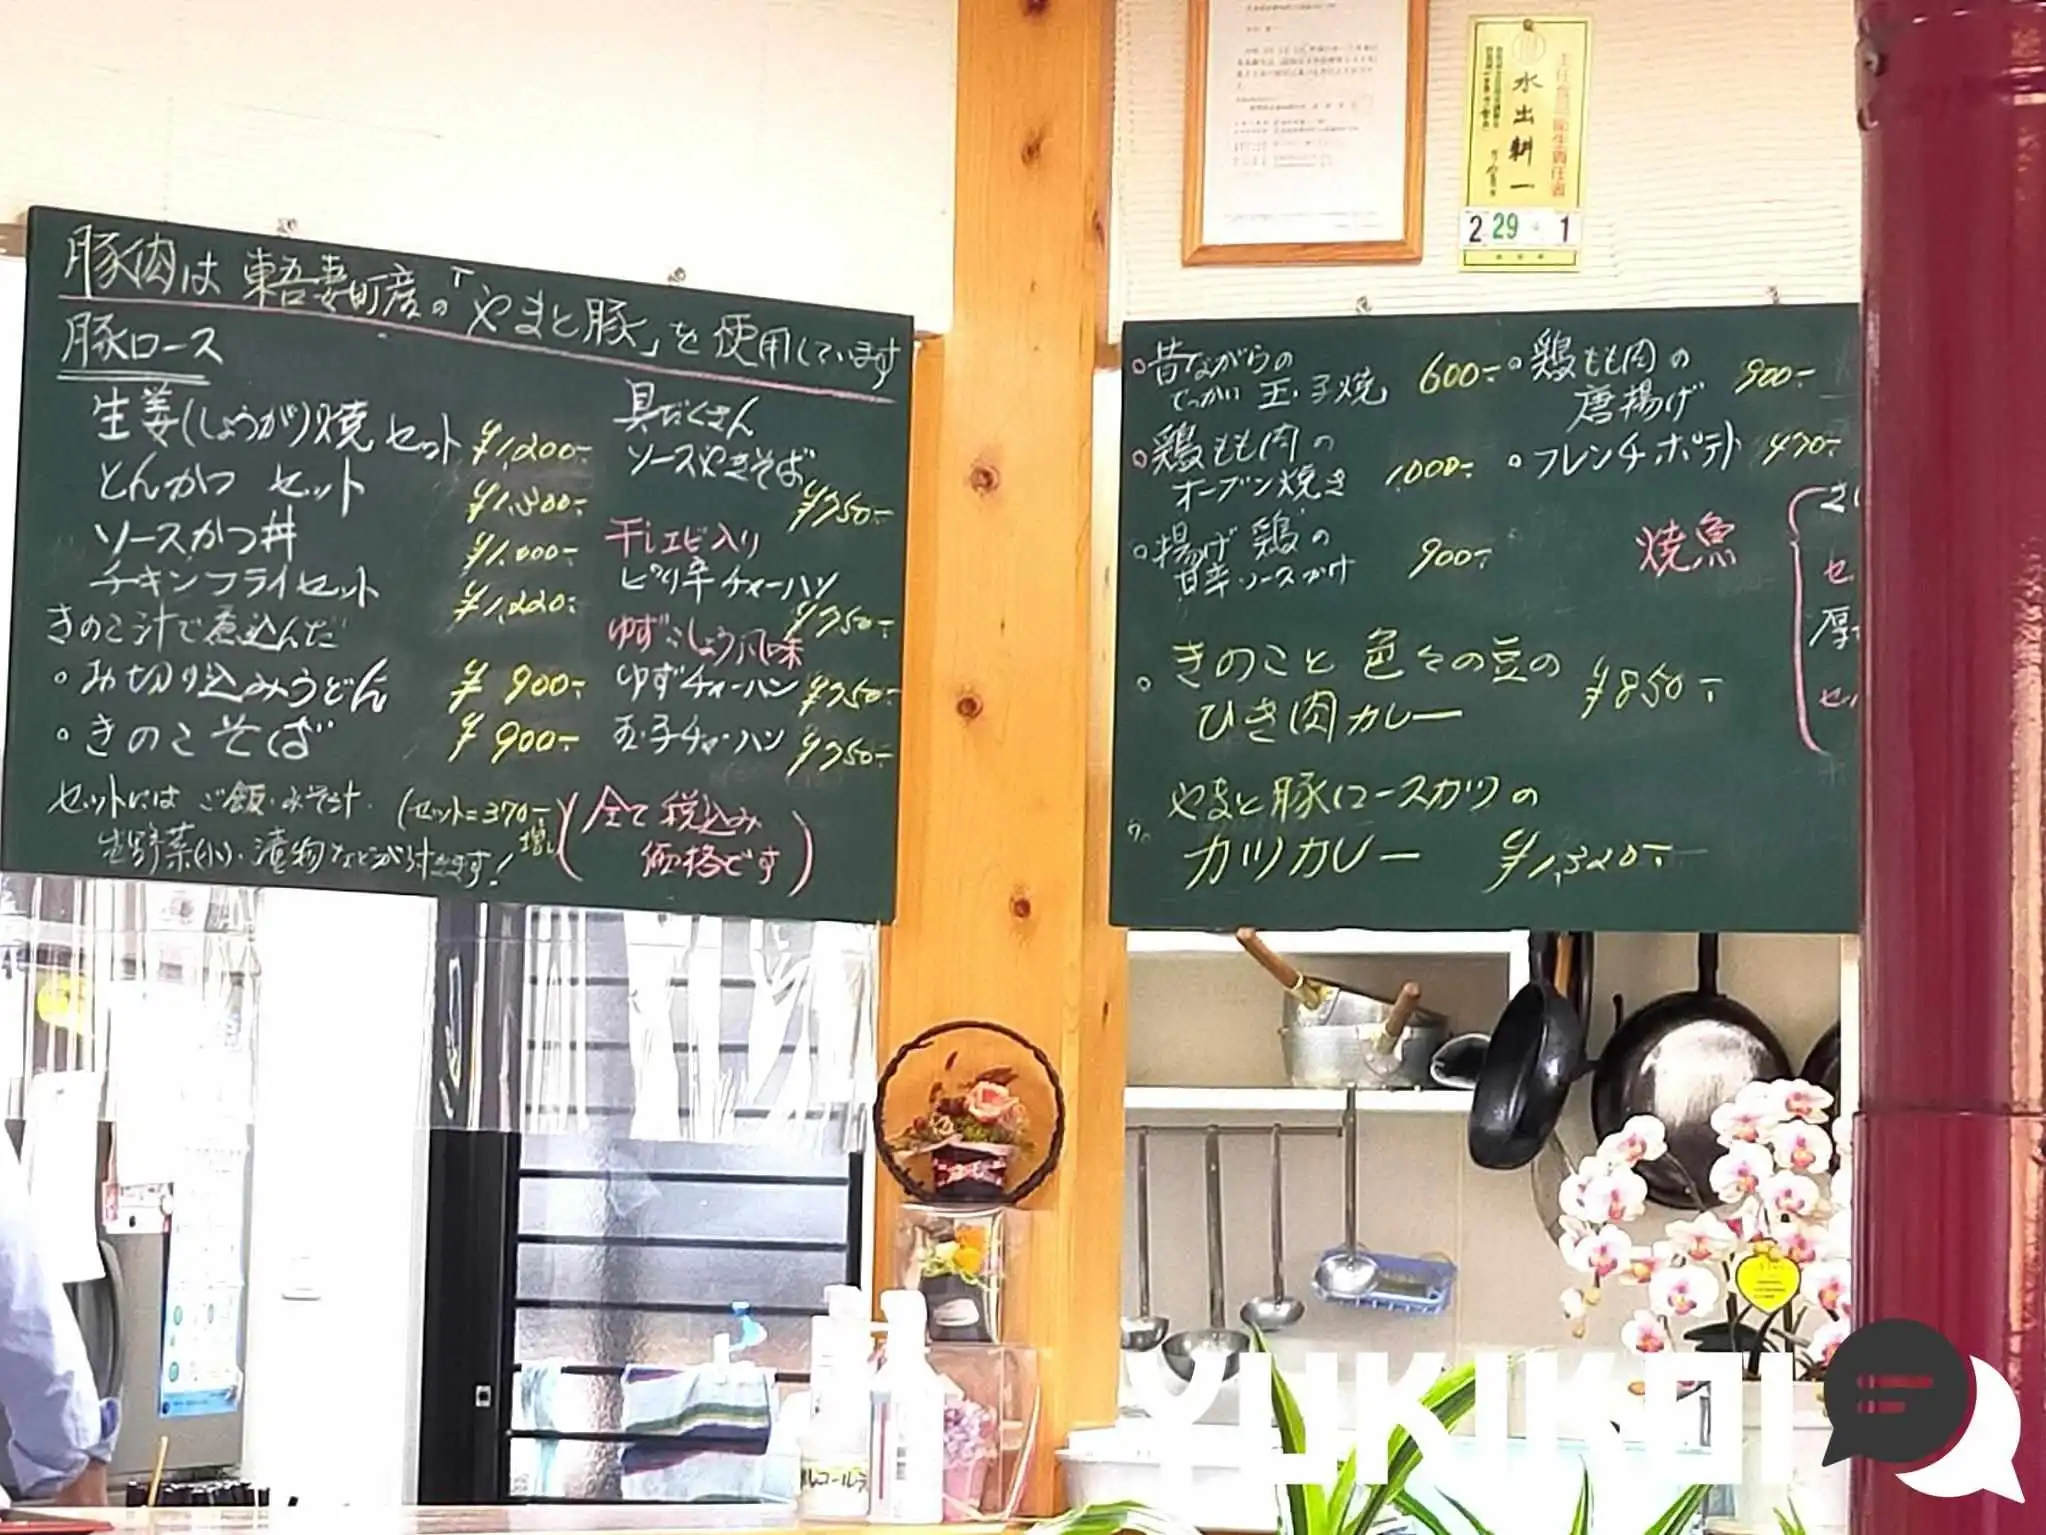 豚肉は 東吾妻町産の「やまと豚」を使用しています
豚ロース
生姜(しょうが)焼 セット ¥1,200-
とんかつ セット ¥1,300-
ソースかつ丼 ¥1,000-
チキンフライセット ¥1,220-
きのこ汁で煮込んだ
・お切り込みうどん ¥900-
・きのこそば ¥900-
セットには ご飯・みそ汁・
生野菜(小)・漬物などが付きます!
(セット=370-増し)
具だくさん
ソースやきそば
¥750-
干しエビ入り
ピリ辛チャーハン
¥750-
ゆずこしょう風味
ゆずチャーハン ¥750-
玉子チャーハン ¥750-
(全て税込み
価格です)
水出耕一
2 29 1
。昔ながらの
でっかい 玉子焼 600-
。鶏もも肉の
オーブン焼き 1,000-
。揚げ鶏の
甘辛ソースかけ 900-
。鶏もも肉の
唐揚げ 900-
。フレンチポテト 470-
焼魚
。きのこと色々の豆の
ひき肉カレー ¥850-
やまと豚ロースカツの
カツカレー ¥1,320-
YUKIKOI